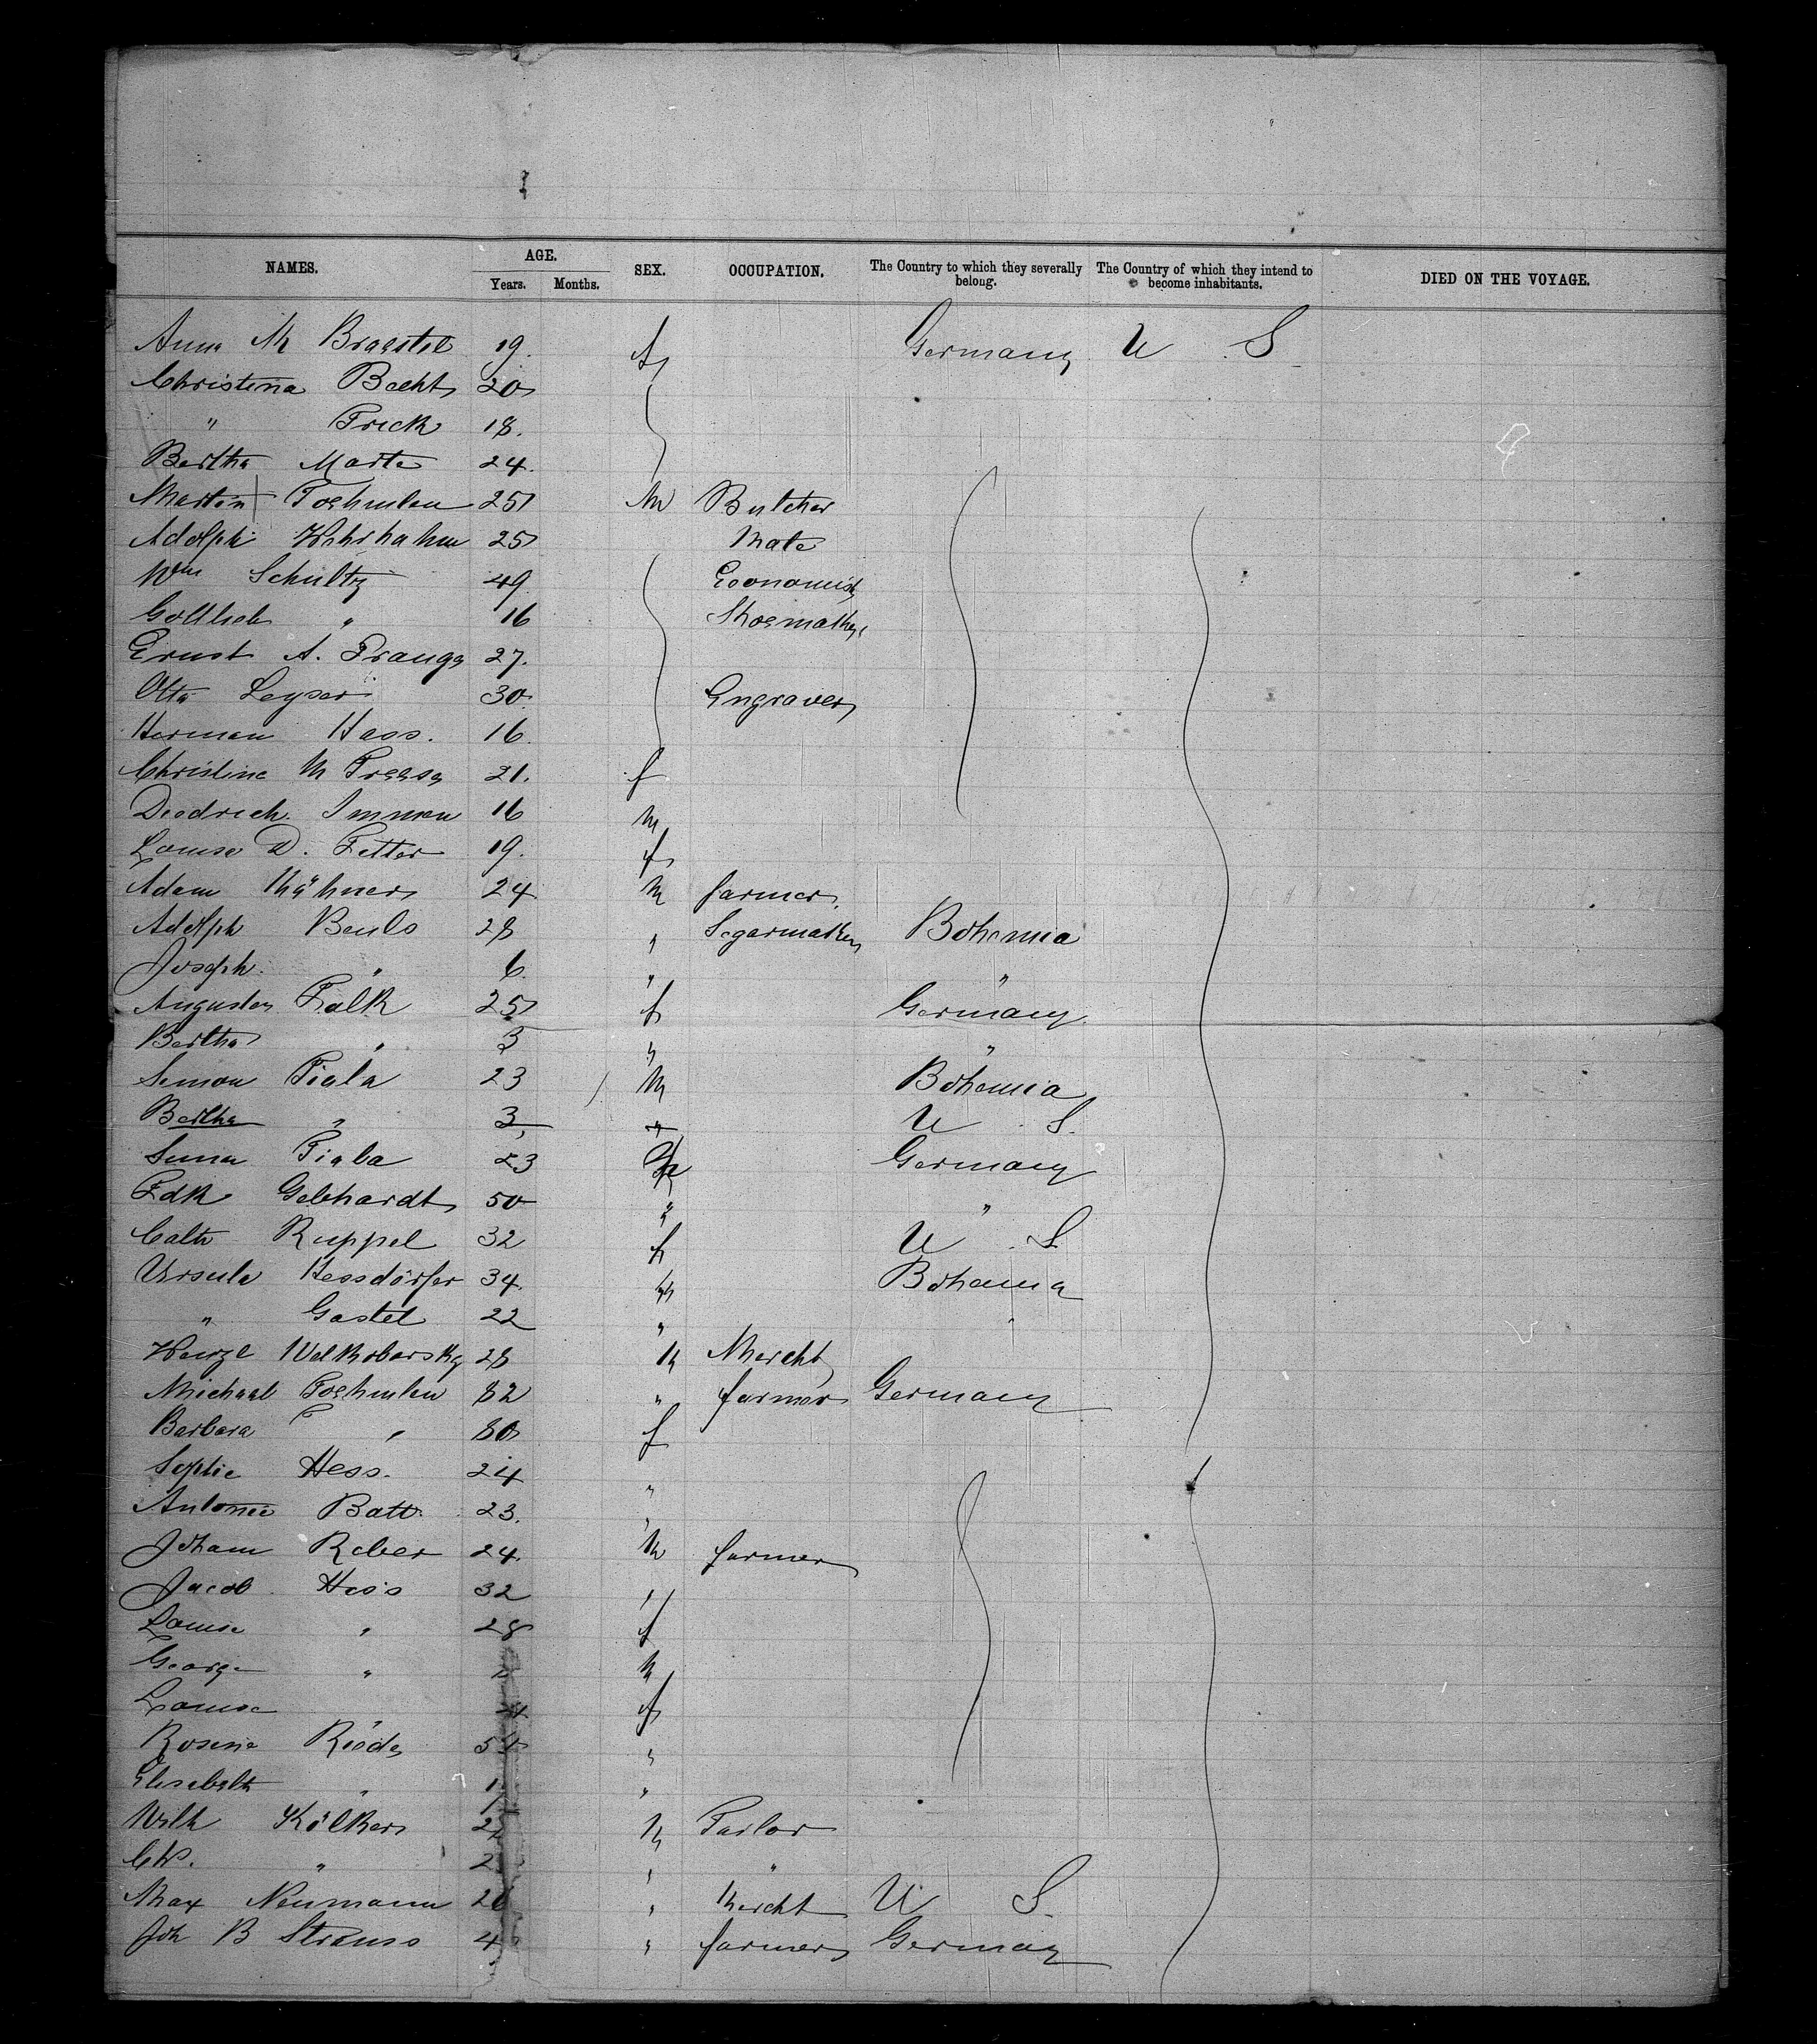 NAMES. AGE. Years. Months. SEX. OCCUPATION. The Country to which they severally belong. The Country of which they intend to become inhabitants. DIED ON THE VOYAGE.
Anna M Braestel 19. f Germany U S
Christina Becht 20
" Frick 18.
Bertha Marte 24.
Martin Foehmlen 25 M Butcher
Adolph Wehrhahn 25 Mate
Wm Schultz 49 Economist
Gottlieb " 16 Shoemaker
Ernst A. Prange 27.
Otto Leyser 30. Engraver
Herman Hass. 16.
Christine M Freese 21. f
Diedrich Immen 16 M
Louise D. Fetter 19. f
Adam Kähner 24 M farmer.
Adolph 28 " Segarmaker Bohemia
Joseph " 6 " "
Augusta Falk 25 f Germany
Bertha " 3 " "
Simon Fiala 23 M Bohemia
Bertha " 3 " U S.
Fiala 23 Germany
Fdk Gebhardt 50 " "
Cath Ruppel 32 f U S
Ursula Hessdörfer 34. Bohemia
" Gastel 22 "
Wenzl Welkoborsky 28 M Mercht
Michael Foehmlen 32 " farmer Germany
Barbara " 30 f
Sophie Hess. 24 "
Antonie Batt. 23. "
Johann Reber 24. M farmer
Jacob Hess 32 "
Louise " 28 f
George " M
Louise " 4 f
Rosine "
Elisabeth " "
Wilh Kölker M Tailor
" " "
Max Neumann " Mercht U S.
Joh B Strauss " farmer Germany